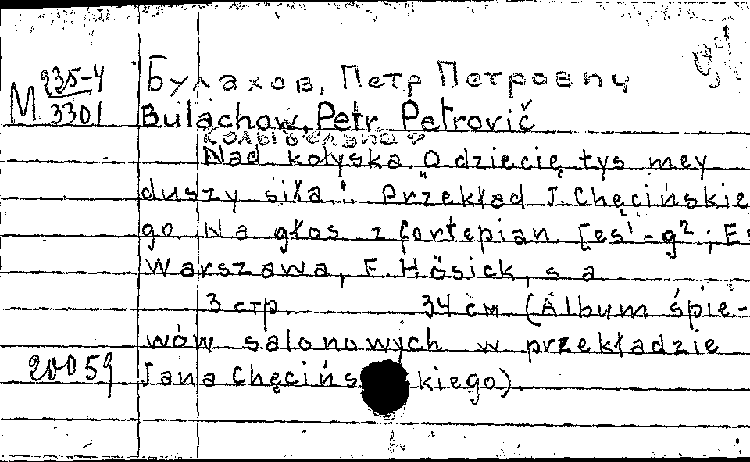 М 235-4
3301
Булахов, Петр Петрович
Bulachow, Petr Petrovič
Колыбельная
Nad kołyską „O dziecię, tyś mey
duszy siła". Przekład J. Chęcińskie
go Na głos z fortepian [es¹-g²; Es
Warszawa, F. Hösick, s a
3 стр. 34 см (Album śpie-
wów salonowych w przekładzie
20059
Jana Chęcińskiego).